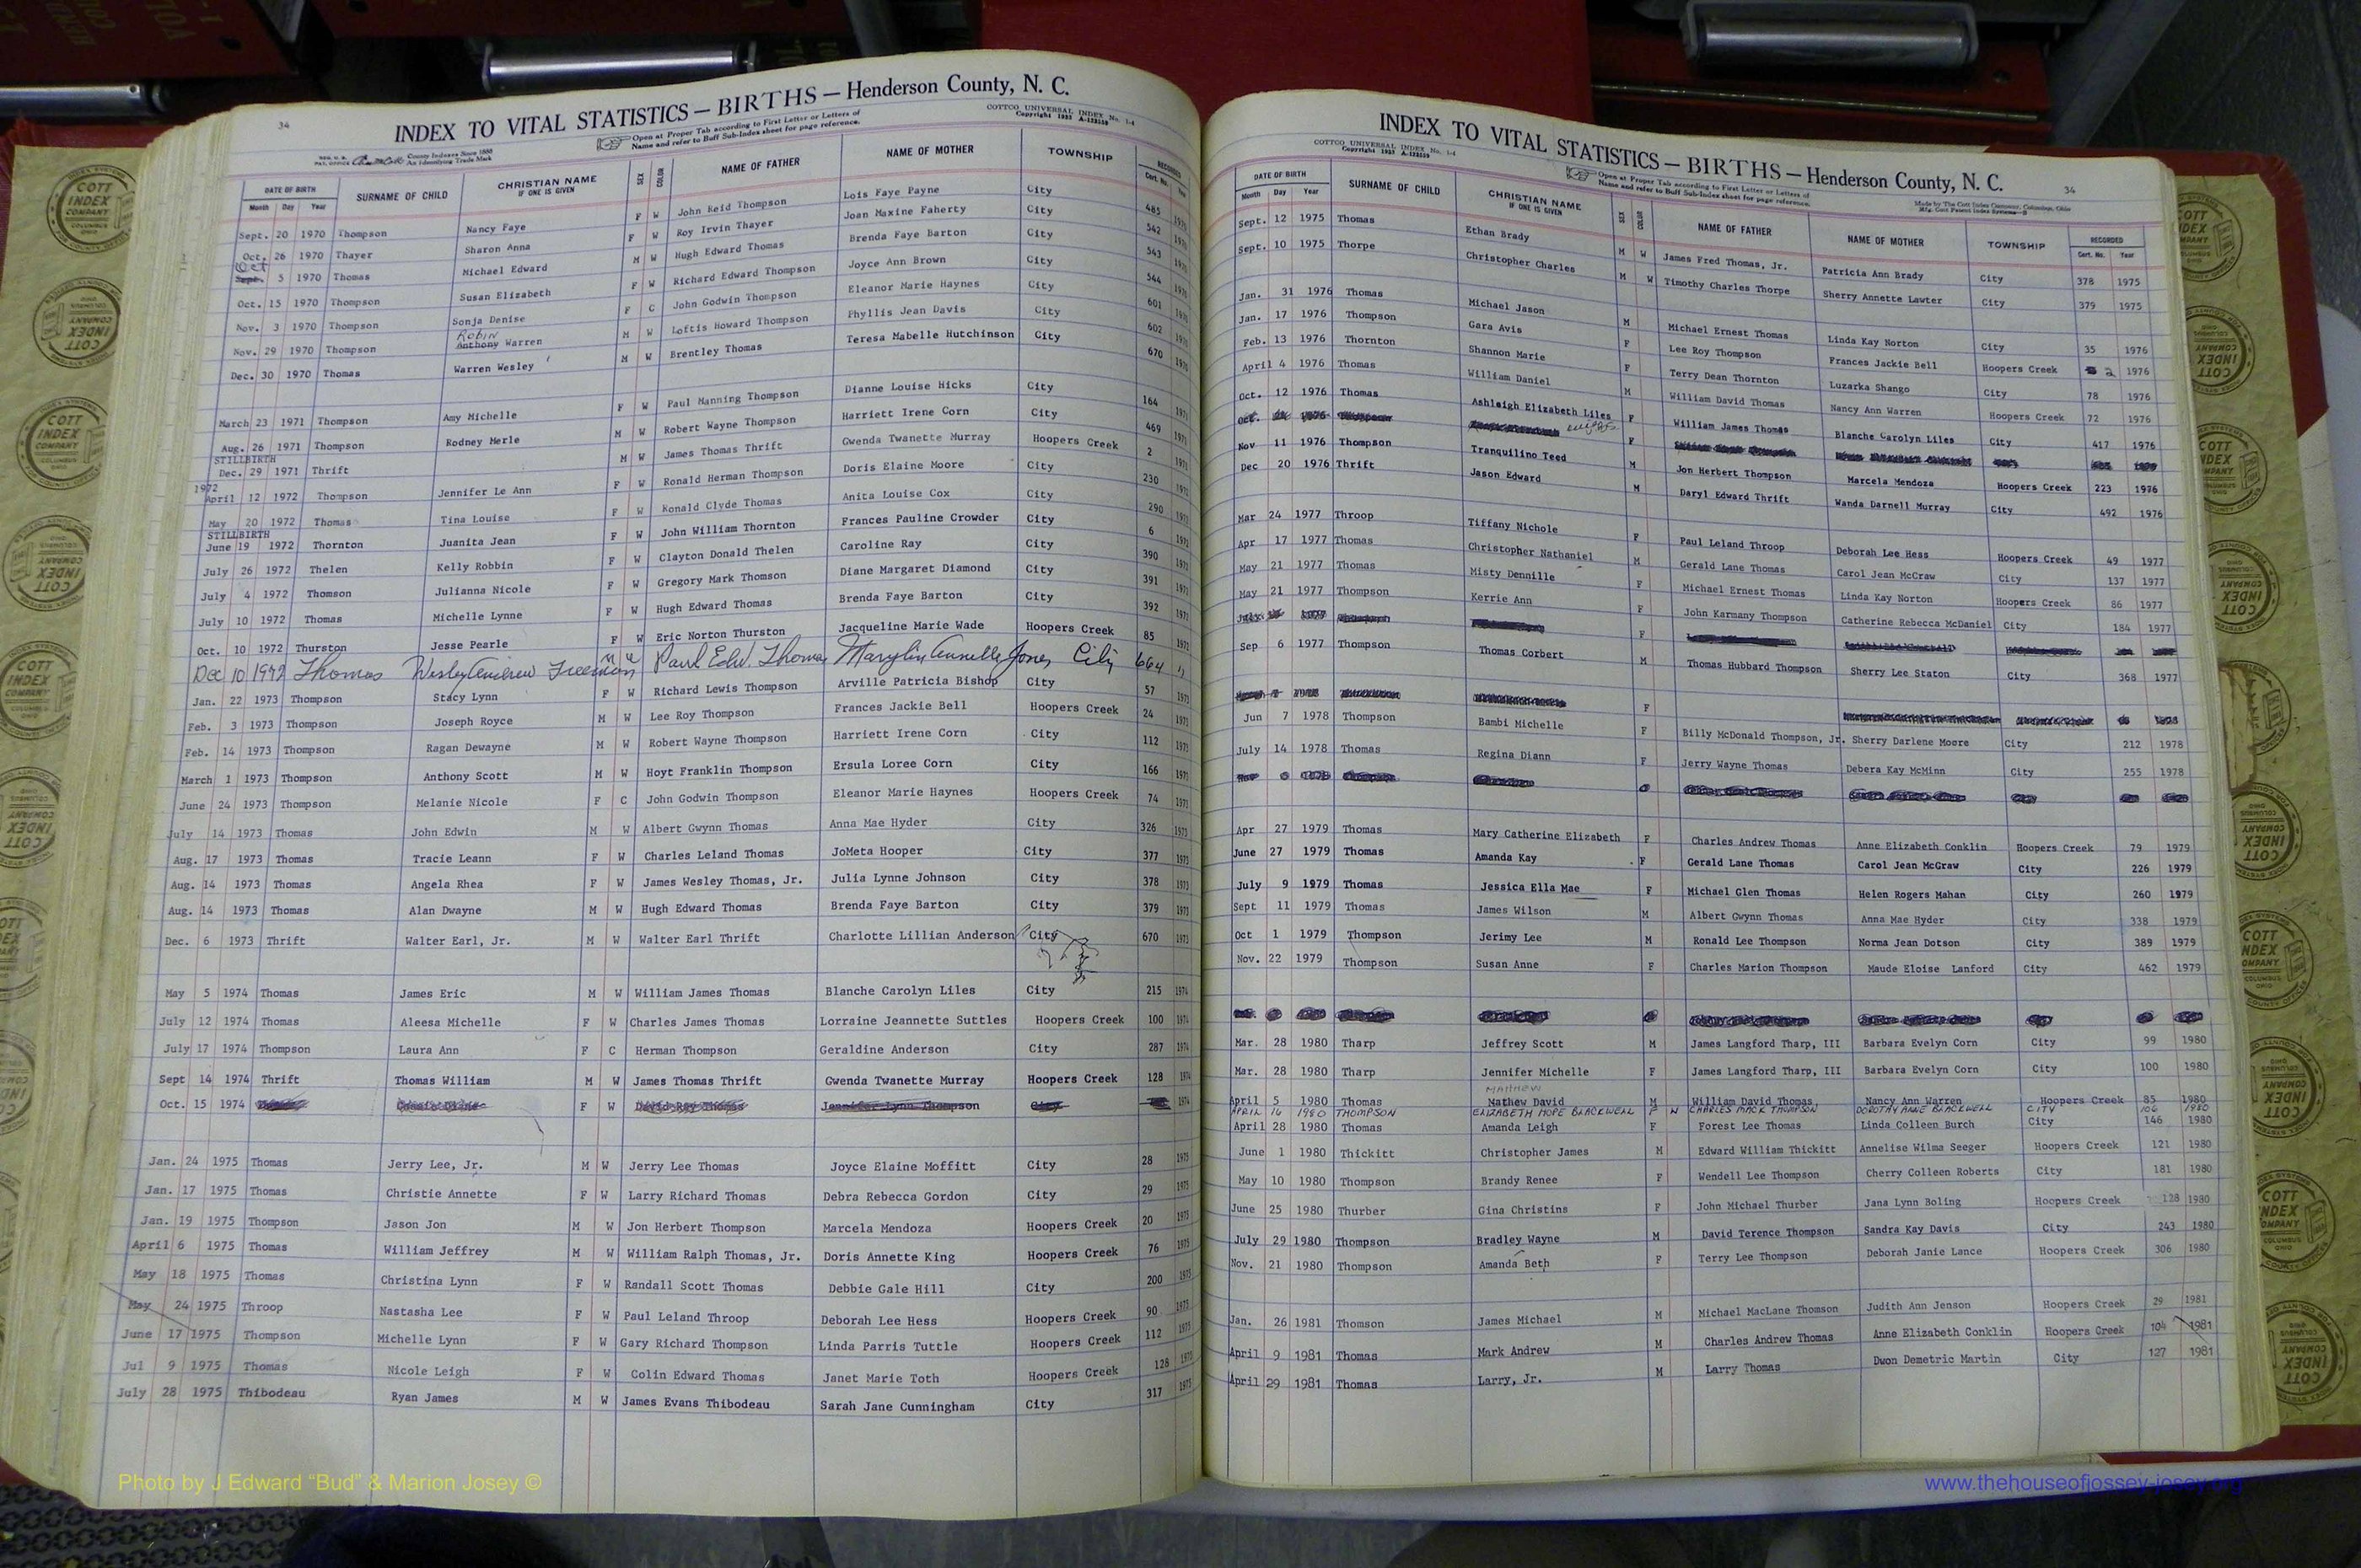 34
INDEX TO VITAL STATISTICS — BIRTHS — Henderson County, N. C.
COTTCO UNIVERSAL INDEX No. 1-4
Copyright 1933 A-123539
Open at Proper Tab according to First Letter or Letters of
Name and refer to Buff Sub-Index sheet for page reference.
County Indexes Since 1888
An Identifying Trade Mark
DATE OF BIRTH SURNAME OF CHILD CHRISTIAN NAME IF ONE IS GIVEN SEX COLOR NAME OF FATHER NAME OF MOTHER TOWNSHIP RECORDED
Month Day Year Cert. No. Year
Sept. 20 1970 Thompson Nancy Faye F W John Reid Thompson Lois Faye Payne City 485 1970
Oct. 26 1970 Thayer Sharon Anna F W Roy Irvin Thayer Joan Maxine Faherty City 542 1970
Oct
Sept. 5 1970 Thomas Michael Edward M W Hugh Edward Thomas Brenda Faye Barton City 543 1970
Oct. 15 1970 Thompson Susan Elizabeth F W Richard Edward Thompson Joyce Ann Brown City 544 1970
Nov. 3 1970 Thompson Sonja Denise F C John Godwin Thompson Eleanor Marie Haynes City 601
Robin
Nov. 29 1970 Thompson Anthony Warren M W Loftis Howard Thompson Phyllis Jean Davis City 602
Dec. 30 1970 Thomas Warren Wesley M W Brentley Thomas Teresa Mabelle Hutchinson City 670
March 23 1971 Thompson Amy Michelle F W Paul Manning Thompson Dianne Louise Hicks City 164
Aug. 26 1971 Thompson Rodney Merle M W Robert Wayne Thompson Harriett Irene Corn City 469
STILLBIRTH
Dec. 29 1971 Thrift M W James Thomas Thrift Gwenda Twanette Murray Hoopers Creek 2
1972
April 12 1972 Thompson Jennifer Le Ann F W Ronald Herman Thompson Doris Elaine Moore City 230
May 20 1972 Thomas Tina Louise F W Ronald Clyde Thomas Anita Louise Cox City 290
STILLBIRTH
June 19 1972 Thornton Juanita Jean F W John William Thornton Frances Pauline Crowder City 6
July 26 1972 Thelen Kelly Robbin F W Clayton Donald Thelen Caroline Ray City 390
July 4 1972 Thomson Julianna Nicole F W Gregory Mark Thomson Diane Margaret Diamond City 391
July 10 1972 Thomas Michelle Lynne F W Hugh Edward Thomas Brenda Faye Barton City 392
Oct. 10 1972 Thurston Jesse Pearle F W Eric Norton Thurston Jacqueline Marie Wade Hoopers Creek 85
Dec 10 1972 Thomas Wesley Andrew Paul Edw. Thomas Marylin Annette Jones City 664 "
Jan. 22 1973 Thompson Stacy Lynn F W Richard Lewis Thompson Arville Patricia Bishop City 57 1973
Feb. 3 1973 Thompson Joseph Royce M W Lee Roy Thompson Frances Jackie Bell Hoopers Creek 24 1973
Feb. 14 1973 Thompson Ragan Dewayne M W Robert Wayne Thompson Harriett Irene Corn City 112 1973
March 1 1973 Thompson Anthony Scott M W Hoyt Franklin Thompson Ersula Loree Corn City 166 1973
June 24 1973 Thompson Melanie Nicole F C John Godwin Thompson Eleanor Marie Haynes Hoopers Creek 74 1973
July 14 1973 Thomas John Edwin M W Albert Gwynn Thomas Anna Mae Hyder City 326 1973
Aug. 17 1973 Thomas Tracie Leann F W Charles Leland Thomas JoMeta Hooper City 377 1973
Aug. 14 1973 Thomas Angela Rhea F W James Wesley Thomas, Jr. Julia Lynne Johnson City 378 1973
Aug. 14 1973 Thomas Alan Dwayne M W Hugh Edward Thomas Brenda Faye Barton City 379 1973
Dec. 6 1973 Thrift Walter Earl, Jr. M W Walter Earl Thrift Charlotte Lillian Anderson City 670 1973
May 5 1974 Thomas James Eric M W William James Thomas Blanche Carolyn Liles City 215 1974
July 12 1974 Thomas Aleesa Michelle F W Charles James Thomas Lorraine Jeannette Suttles Hoopers Creek 100 1974
July 17 1974 Thompson Laura Ann F C Herman Thompson Geraldine Anderson City 287 1974
Sept 14 1974 Thrift Thomas William M W James Thomas Thrift Gwenda Twanette Murray Hoopers Creek 128 1974
Oct. 15 1974 F W David Roy Thomas Jennifer Lynn Thompson City 1974
Jan. 24 1975 Thomas Jerry Lee, Jr. M W Jerry Lee Thomas Joyce Elaine Moffitt City 28 1975
Jan. 17 1975 Thomas Christie Annette F W Larry Richard Thomas Debra Rebecca Gordon City 29 1975
Jan. 19 1975 Thompson Jason Jon M W Jon Herbert Thompson Marcela Mendoza Hoopers Creek 20 1975
April 6 1975 Thomas William Jeffrey M W William Ralph Thomas, Jr. Doris Annette King Hoopers Creek 76 1975
May 18 1975 Thomas Christina Lynn F W Randall Scott Thomas Debbie Gale Hill City 200 1975
May 24 1975 Throop Nastasha Lee F W Paul Leland Throop Deborah Lee Hess Hoopers Creek 90 1975
June 17 1975 Thompson Michelle Lynn F W Gary Richard Thompson Linda Parris Tuttle Hoopers Creek 112 1975
Jul 9 1975 Thomas Nicole Leigh F W Colin Edward Thomas Janet Marie Toth Hoopers Creek 128 1975
July 28 1975 Thibodeau Ryan James M W James Evans Thibodeau Sarah Jane Cunningham City 317 1975
Photo by J Edward “Bud” & Marion Josey ©
INDEX TO VITAL STATISTICS — BIRTHS — Henderson County, N. C.
COTTCO UNIVERSAL INDEX No. 1-4
Copyright 1933 A-123539
Open at Proper Tab according to First Letter or Letters of
Name and refer to Buff Sub-Index sheet for page reference.
Made by The Cott Index Company, Columbus, Ohio
34
DATE OF BIRTH SURNAME OF CHILD CHRISTIAN NAME IF ONE IS GIVEN SEX COLOR NAME OF FATHER NAME OF MOTHER TOWNSHIP RECORDED
Month Day Year Cert. No. Year
Sept. 12 1975 Thomas Ethan Brady M W James Fred Thomas, Jr. Patricia Ann Brady City 378 1975
Sept. 10 1975 Thorpe Christopher Charles M W Timothy Charles Thorpe Sherry Annette Lawter City 379 1975
Jan. 31 1976 Thomas Michael Jason M Michael Ernest Thomas Linda Kay Norton City 35 1976
Jan. 17 1976 Thompson Gara Avis F Lee Roy Thompson Frances Jackie Bell Hoopers Creek 2 1976
Feb. 13 1976 Thornton Shannon Marie F Terry Dean Thornton Luzarka Shango City 78 1976
April 4 1976 Thomas William Daniel M William David Thomas Nancy Ann Warren Hoopers Creek 72 1976
Oct. 12 1976 Thomas Ashleigh Elizabeth Liles F William James Thomas Blanche Carolyn Liles City 417 1976
Oct. 1976
Nov 11 1976 Thompson Tranquilino Teed M Jon Herbert Thompson Marcela Mendoza Hoopers Creek 223 1976
Dec 20 1976 Thrift Jason Edward M Daryl Edward Thrift Wanda Darnell Murray City 492 1976
Mar 24 1977 Throop Tiffany Nichole F Paul Leland Throop Deborah Lee Hess Hoopers Creek 49 1977
Apr 17 1977 Thomas Christopher Nathaniel M Gerald Lane Thomas Carol Jean McCraw City 137 1977
May 21 1977 Thomas Misty Dennille F Michael Ernest Thomas Linda Kay Norton Hoopers Creek 86 1977
May 21 1977 Thompson Kerrie Ann F John Karmany Thompson Catherine Rebecca McDaniel City 184 1977
July 1977 F
Sep 6 1977 Thompson Thomas Corbert M Thomas Hubbard Thompson Sherry Lee Staton City 368 1977
F
Jun 7 1978 Thompson Bambi Michelle F Billy McDonald Thompson, Jr. Sherry Darlene Moore City 212 1978
July 14 1978 Thomas Regina Diann F Jerry Wayne Thomas Debera Kay McMinn City 255 1978
Apr 27 1979 Thomas Mary Catherine Elizabeth F Charles Andrew Thomas Anne Elizabeth Conklin Hoopers Creek 79 1979
June 27 1979 Thomas Amanda Kay F Gerald Lane Thomas Carol Jean McGraw City 226 1979
July 9 1979 Thomas Jessica Ella Mae F Michael Glen Thomas Helen Rogers Mahan City 260 1979
Sept 11 1979 Thomas James Wilson M Albert Gwynn Thomas Anna Mae Hyder City 338 1979
Oct 1 1979 Thompson Jerimy Lee M Ronald Lee Thompson Norma Jean Dotson City 389 1979
Nov. 22 1979 Thompson Susan Anne F Charles Marion Thompson Maude Eloise Lanford City 462 1979
Mar. 28 1980 Tharp Jeffrey Scott M James Langford Tharp, III Barbara Evelyn Corn City 99 1980
Mar. 28 1980 Tharp Jennifer Michelle F James Langford Tharp, III Barbara Evelyn Corn City 100 1980
MATHEW
April 5 1980 Thomas Mathew David M William David Thomas Nancy Ann Warren Hoopers Creek 85 1980
APRIL 16 1980 THOMPSON ELIZABETH HOPE BLACKWELL F W CHARLES MACK THOMPSON DOROTHY ANNE BLACKWELL CITY 106 1980
April 28 1980 Thomas Amanda Leigh F Forest Lee Thomas Linda Colleen Burch City 146 1980
June 1 1980 Thickitt Christopher James M Edward William Thickitt Annelise Wilma Seeger Hoopers Creek 121 1980
May 10 1980 Thompson Brandy Renee F Wendell Lee Thompson Cherry Colleen Roberts City 181 1980
June 25 1980 Thurber Gina Christina F John Michael Thurber Jana Lynn Boling Hoopers Creek 128 1980
July 29 1980 Thompson Bradley Wayne M David Terence Thompson Sandra Kay Davis City 243 1980
Nov. 21 1980 Thompson Amanda Beth F Terry Lee Thompson Deborah Janie Lance Hoopers Creek 306 1980
Jan. 26 1981 Thomson James Michael M Michael MacLane Thomson Judith Ann Jenson Hoopers Creek 29 1981
April 9 1981 Thomas Mark Andrew M Charles Andrew Thomas Anne Elizabeth Conklin Hoopers Creek 104 1981
April 29 1981 Thomas Larry, Jr. M Larry Thomas Dwon Demetric Martin City 127 1981
www.thehouseofjossey-josey.org